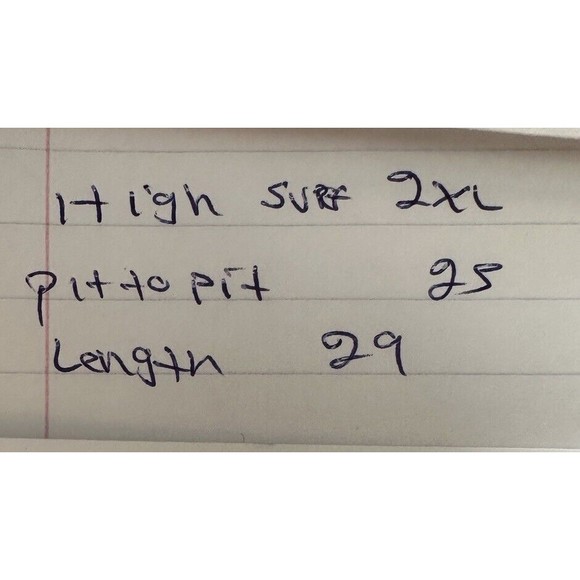 High SURF 2XL
pit to pit 25
Length 29